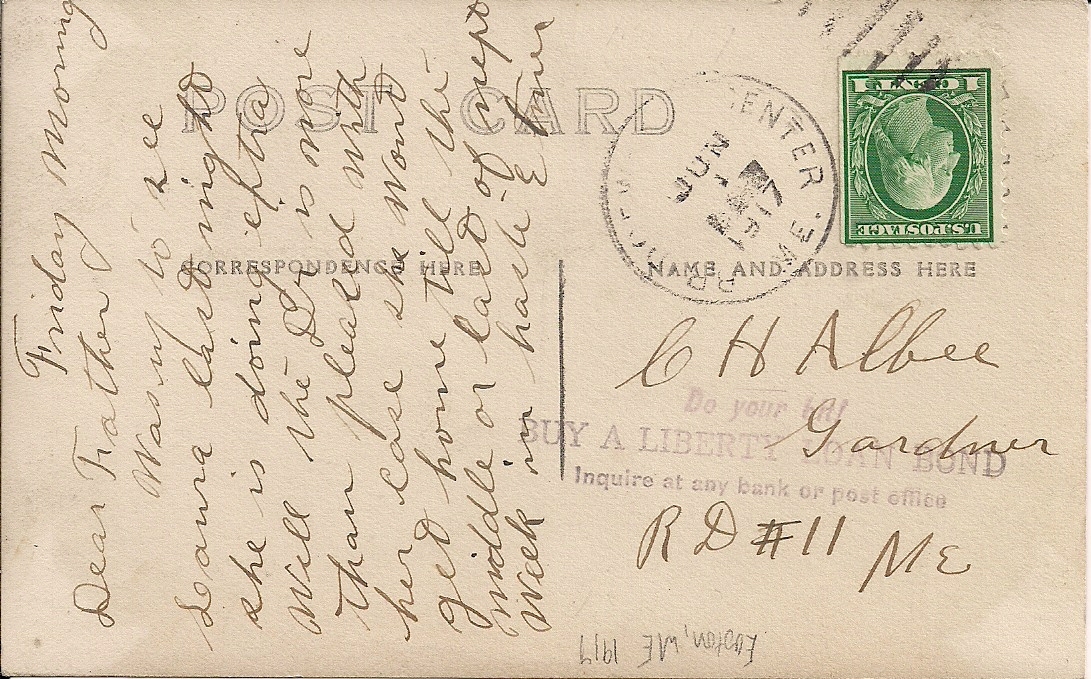 Friday Morning
Dear Father
Was in to see
Leana last night
she is doing extra
Well the Dr is more
than pleased with
her case she wont
get home till the
middle or last of next
Week in haste Elmer
POST CARD
CORRESPONDENCE HERE
NAME AND ADDRESS HERE
CENTER ME.
JUN
1917
1 1
U.S. POSTAGE
C H Albee
Gardner
RD #11 ME
Do your bit!
BUY A LIBERTY LOAN BOND
Inquire at any bank or post office
Easton, ME 1917